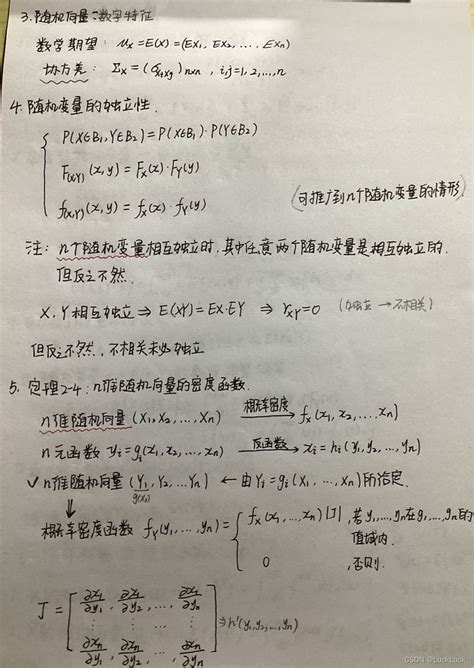 3. 随机向量:数字特征
数学期望: μx=E(X)=(EX1, EX2, ..., EXn)
协方差: Σx=(σxixj)n×n, i,j=1,2,...,n
4. 随机变量的独立性.
P(X∈B1,Y∈B2)=P(X∈B1)·P(Y∈B2)
F(X,Y)(x,y)=Fx(x)·FY(y)
f(X,Y)(x,y)=fx(x)·fY(y)
(可推广到n个随机变量的情形)
注: n个随机变量相互独立时,其中任意两个随机变量是相互独立的.
但反之不然.
X,Y相互独立⇒E(XY)=EX·EY ⇒ rXY=0 (独立→不相关)
但反之不然,不相关未必独立
5. 定理2-4: n维随机向量的密度函数.
n维随机向量 (X1,X2,...,Xn) 概率密度→ fx(x1,x2,...,xn)
n元函数 yi=gi(x1,x2,...,xn) 反函数→ xi=hi(y1,y2,...,yn)
✓ n维随机向量 (Y1,Y2,...Yn) ← 由Yi=gi(X1,...,Xn)所给定.
g(X1)
概率密度函数 fY(y1,...,yn)= { fx(x1,...,xn)|J| ,若y1,...,yn在g1,...,gn的
值域内.
0 ,否则.
J = [ ∂x1/∂y1, ∂x1/∂y2, ..., ∂x1/∂yn
⋮ ⋮ ⋮
∂xn/∂y1, ∂xn/∂y2, ..., ∂xn/∂yn ] ⇒h'(y1,y2,...,yn)
CSDN @LuckLuck